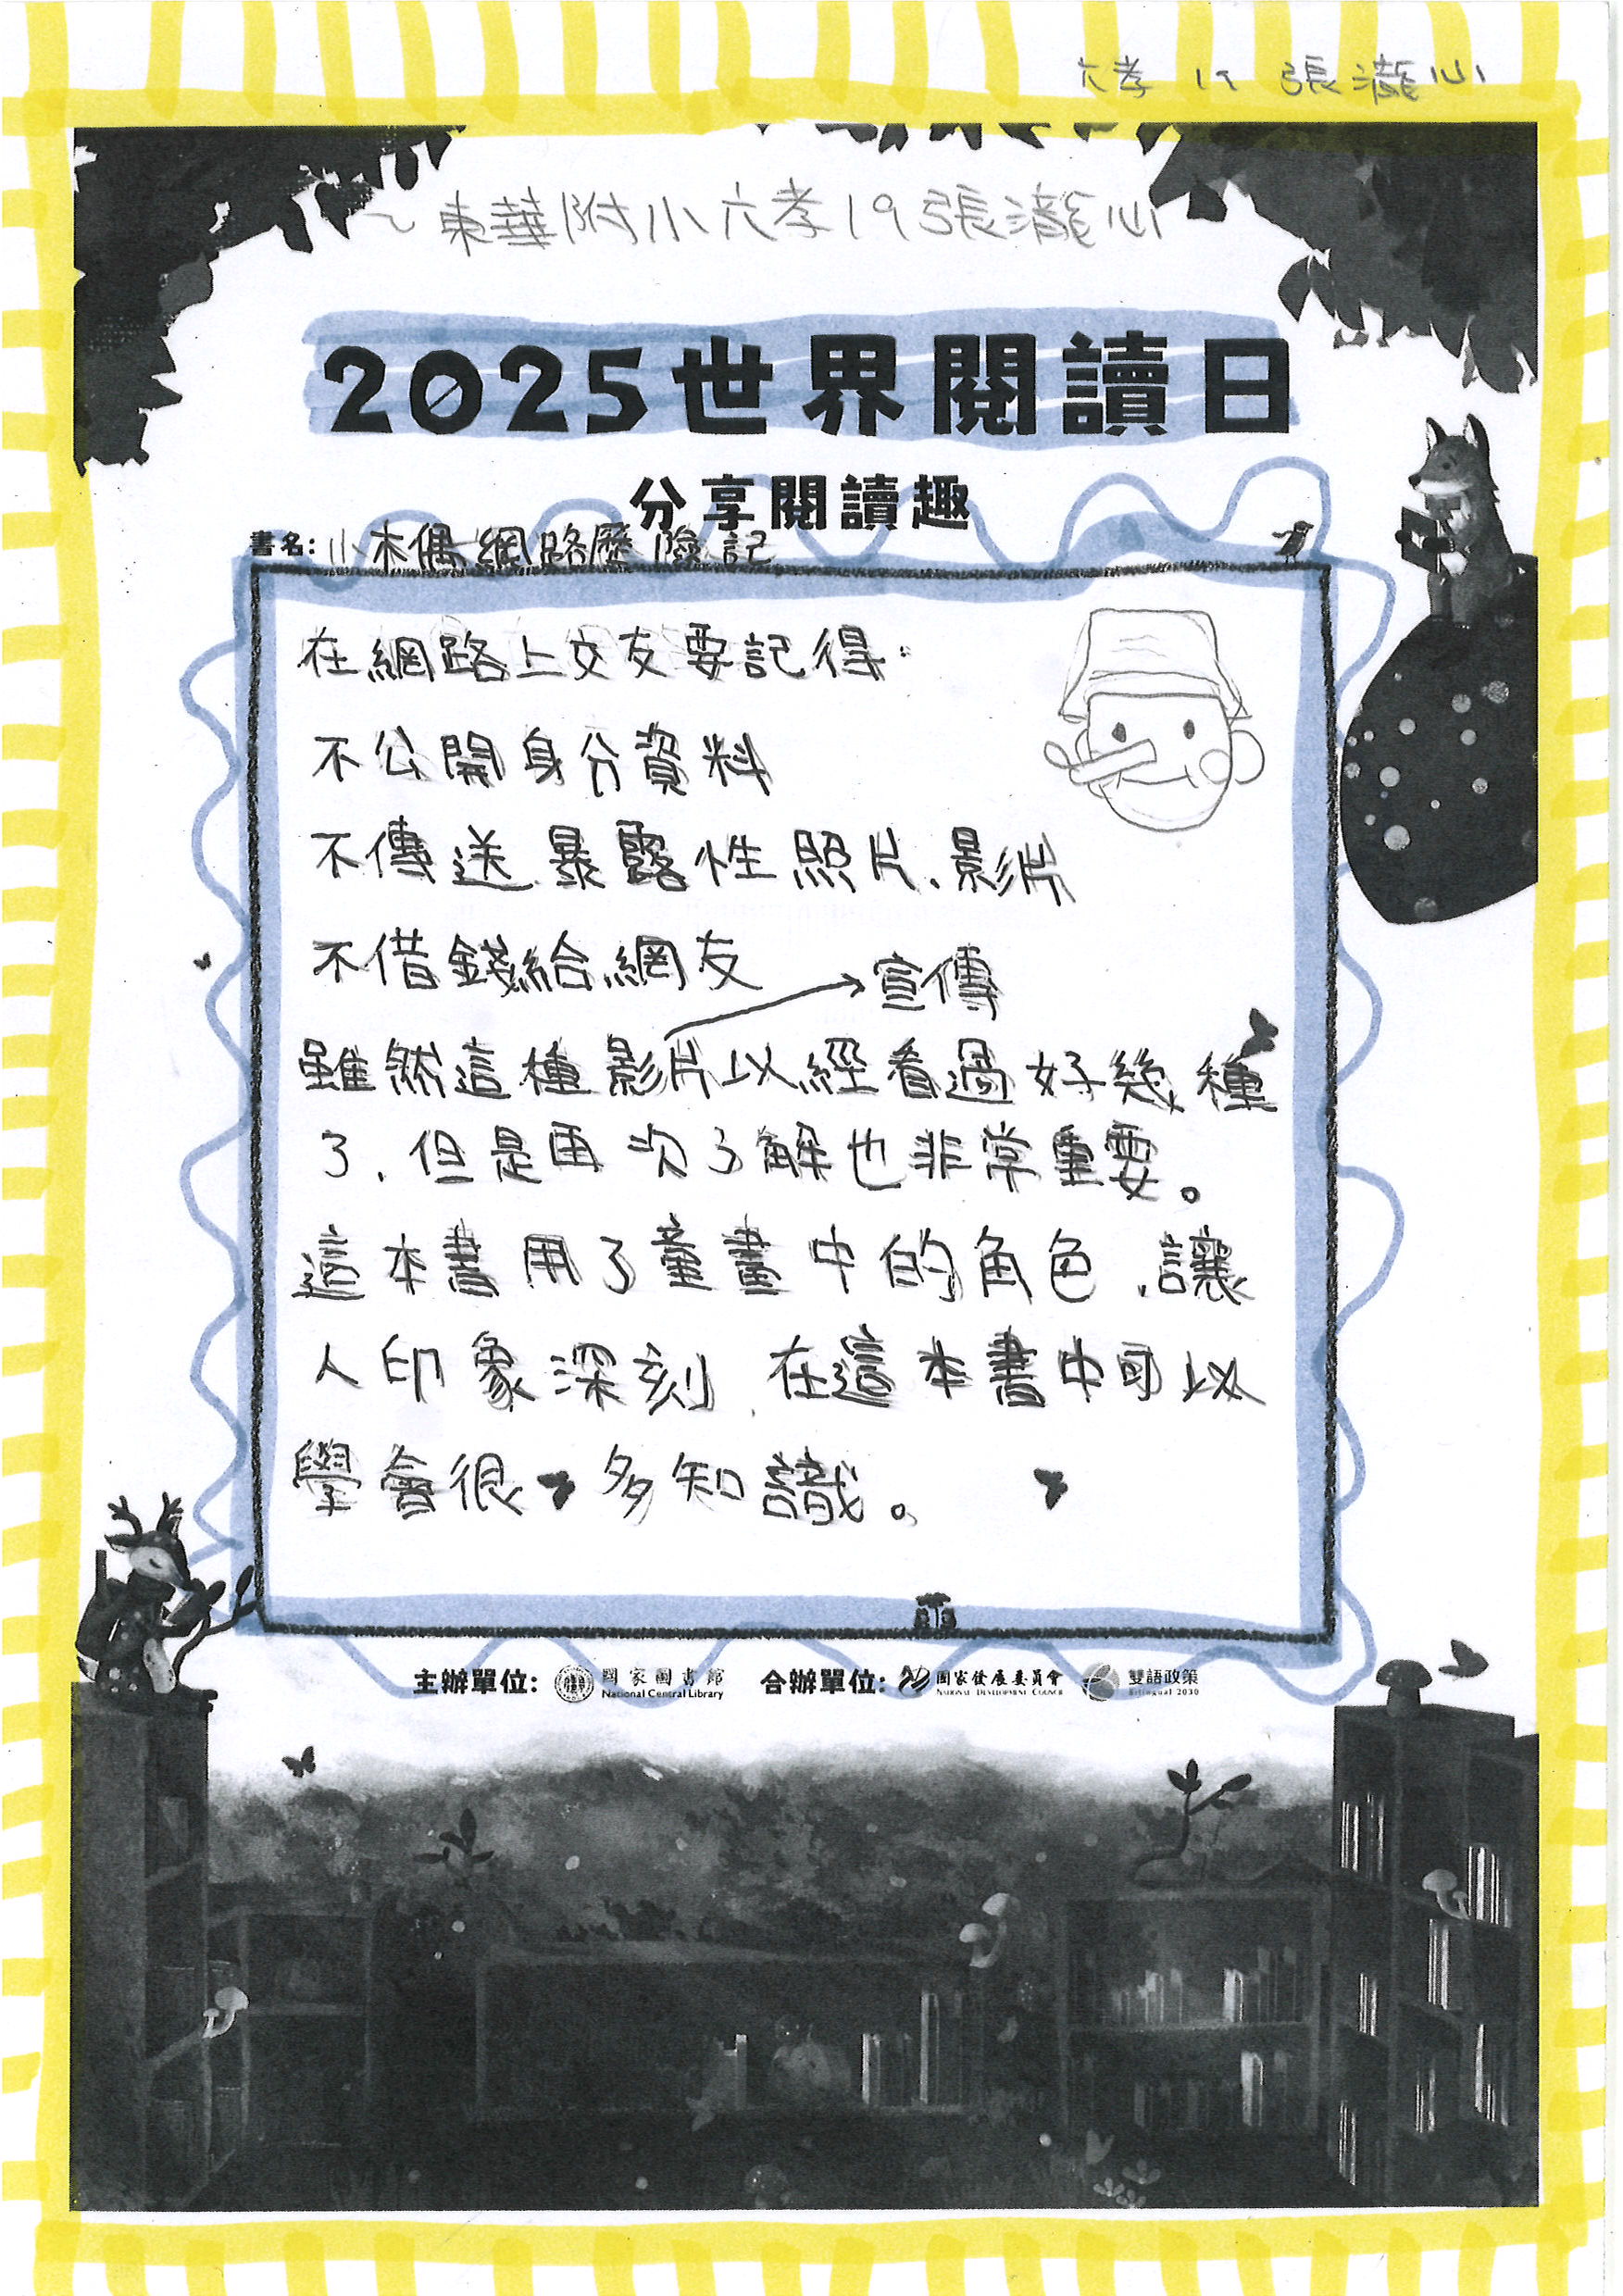 六孝 19 張瀧心
~東華附小六孝19張瀧心
2025世界閱讀日
分享閱讀趣
書名:小木偶網路歷險記
在網路上交友要記得:
不公開身分資料
不傳送暴露性照片、影片
不借錢給網友
→宣傳
雖然這種影片以經看過好幾種
了,但是再次了解也非常重要。
這本書用了童畫中的角色,讓
人印象深刻,在這本書中可以
學會很多知識。
主辦單位: 國家圖書館 National Central Library 合辦單位: 國家發展委員會 National Development Council 雙語政策 Bilingual 2030